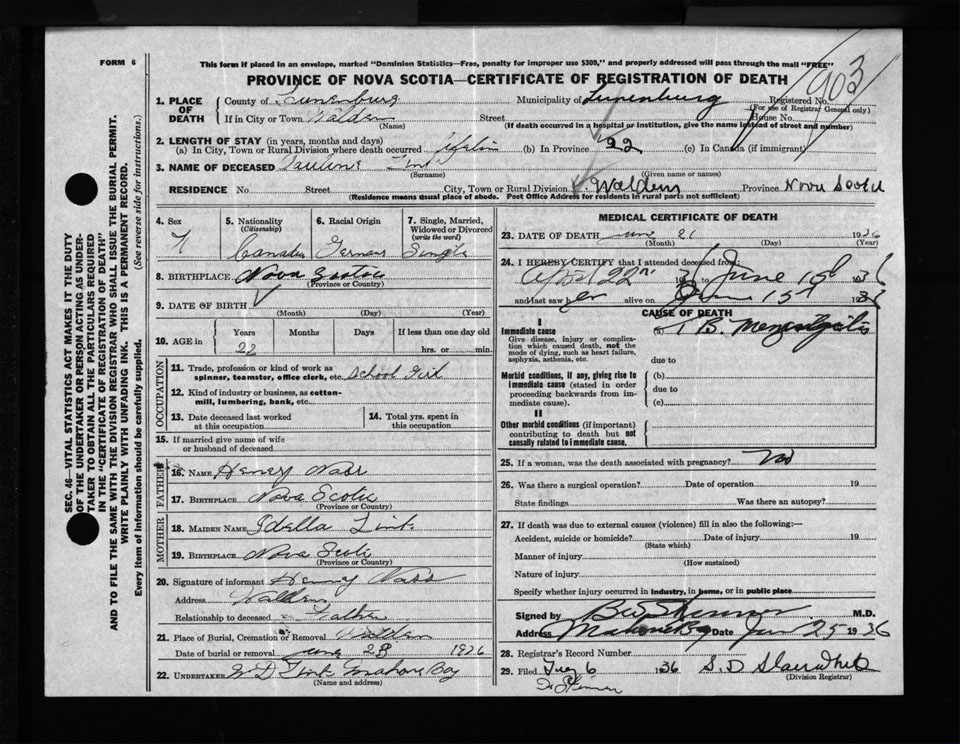 FORM 6
This form if placed in an envelope, marked "Dominion Statistics—Free, penalty for improper use $300," and properly addressed will pass through the mail "FREE"
PROVINCE OF NOVA SCOTIA—CERTIFICATE OF REGISTRATION OF DEATH
903
1. PLACE OF DEATH
County of Lunenburg
Municipality of Lunenburg
Registered No.
(For use of Registrar General only)
If in City or Town Walden
(Name)
Street
House No.
(If death occurred in a hospital or institution, give the name instead of street and number)
2. LENGTH OF STAY (in years, months and days)
(a) In City, Town or Rural Division where death occurred
(b) In Province 22
(c) In Canada (if immigrant)
3. NAME OF DECEASED Pauline
(Surname)
(Given name or names)
RESIDENCE No.
Street
City, Town or Rural Division Walden
Province Nova Scotia
(Residence means usual place of abode. Post Office Address for residents in rural parts not sufficient)
4. Sex
F
5. Nationality
(Citizenship)
Canadian
6. Racial Origin
German
7. Single, Married, Widowed or Divorced
(write the word)
Single
8. BIRTHPLACE Nova Scotia
(Province or Country)
9. DATE OF BIRTH
(Month) (Day) (Year)
10. AGE in
Years Months Days If less than one day old
22
hrs. or min.
OCCUPATION
11. Trade, profession or kind of work as spinner, teamster, office clerk, etc. School Girl
12. Kind of industry or business, as cotton-mill, lumbering, bank, etc.
13. Date deceased last worked at this occupation
14. Total yrs. spent in this occupation
15. If married give name of wife or husband of deceased
FATHER
16. NAME Henry Nass
17. BIRTHPLACE Nova Scotia
(Province or Country)
MOTHER
18. MAIDEN NAME Idella
19. BIRTHPLACE Nova Scotia
(Province or Country)
20. Signature of informant Henry Nass
Address Walden
Relationship to deceased Father
21. Place of Burial, Cremation or Removal Walden
Date of burial or removal June 23 1936
22. UNDERTAKER Mahone Bay
(Name and address)
MEDICAL CERTIFICATE OF DEATH
23. DATE OF DEATH June 21 1936
(Month) (Day) (Year)
24. I HEREBY CERTIFY that I attended deceased from:
April 22nd 1936 June 15 1936
and last saw her alive on June 15th 1936
CAUSE OF DEATH
I
Immediate cause
Give disease, injury or complication which caused death, not the mode of dying, such as heart failure, asphyxia, asthenia, etc.
(a) T.B. Meningitis
due to
Morbid conditions, if any, giving rise to immediate cause (stated in order proceeding backwards from immediate cause).
(b)
due to
(c)
II
Other morbid conditions (if important) contributing to death but not causally related to immediate cause.
25. If a woman, was the death associated with pregnancy? No
26. Was there a surgical operation? Date of operation 19
State findings Was there an autopsy?
27. If death was due to external causes (violence) fill in also the following:—
Accident, suicide or homicide? Date of injury 19
(State which)
Manner of injury
(How sustained)
Nature of injury
Specify whether injury occurred in industry, in home, or in public place
Signed by M.D.
Address Mahone Bay Date Jun 25 1936
28. Registrar's Record Number
29. Filed 6 1936 S. D.
(Division Registrar)
SEC. 46—VITAL STATISTICS ACT MAKES IT THE DUTY
OF THE UNDERTAKER OR PERSON ACTING AS UNDER-
TAKER TO OBTAIN ALL THE PARTICULARS REQUIRED
IN THE "CERTIFICATE OF REGISTRATION OF DEATH"
AND TO FILE THE SAME WITH THE DIVISION REGISTRAR WHO SHALL ISSUE THE BURIAL PERMIT.
WRITE PLAINLY WITH UNFADING INK. THIS IS A PERMANENT RECORD.
Every item of information should be carefully supplied. (See reverse side for instructions.)